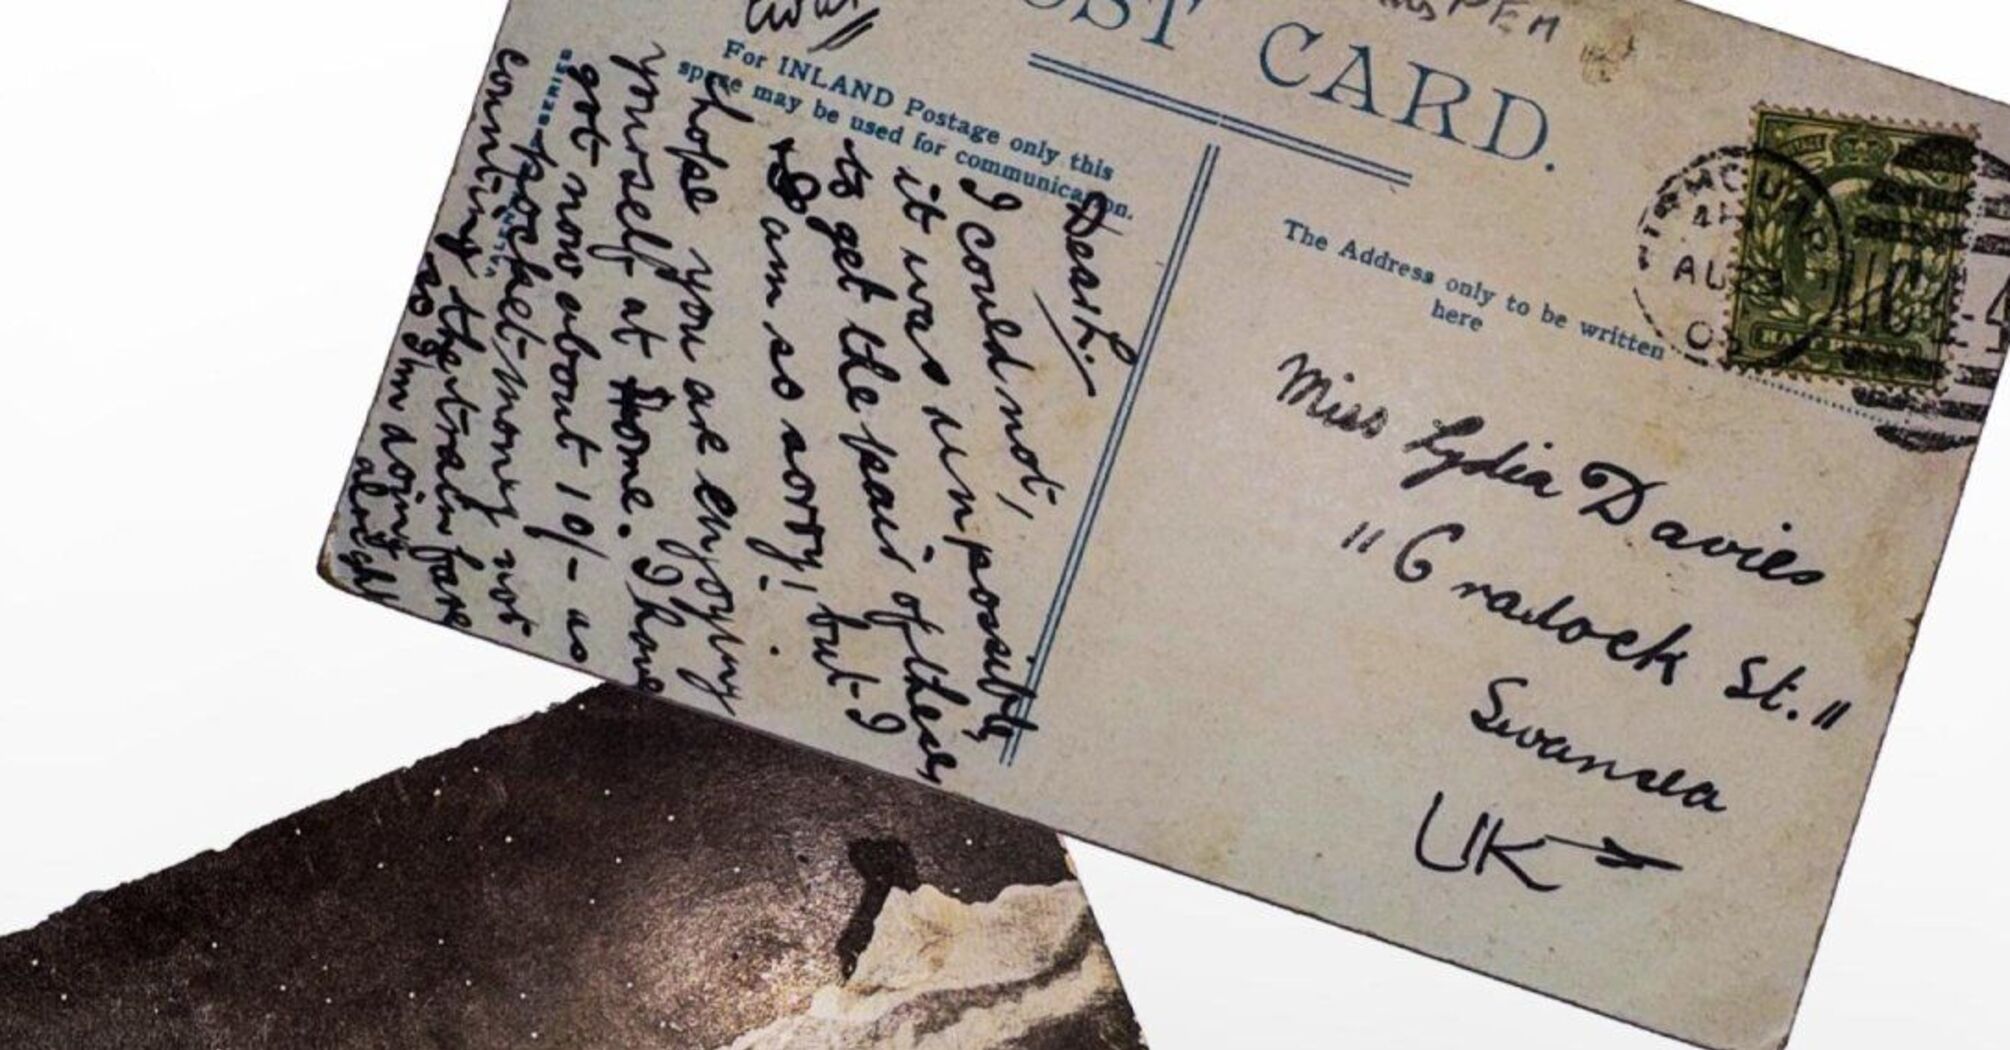 POST CARD.
For INLAND Postage only this
space may be used for communication.
The Address only to be written
here
Dear L.
I could not,
it was unpossible
to get the pair of these
am so sorry! but I
hope you are enjoying
yourself at home. I have
got now about 10/- as
pocket-money not
counting the train fare
so I'm doing
alright
Miss Lydia Davies
"Cradock St."
Swansea
UK
AU 23
SERIES